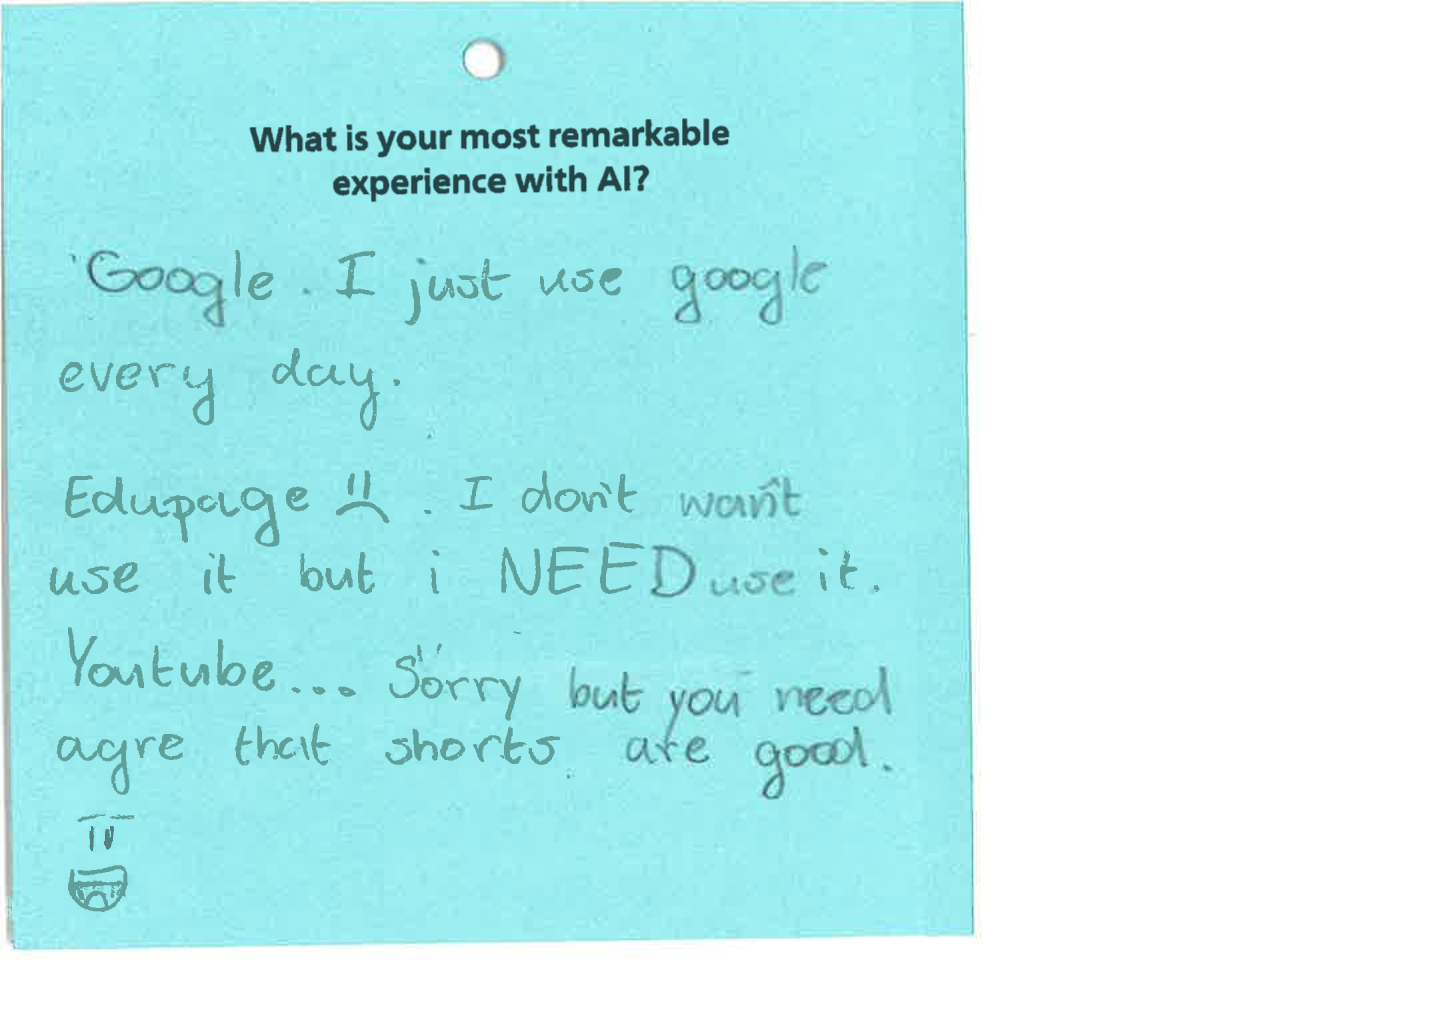 What is your most remarkable
experience with AI?
Google. I just use google
every day.
Edupage . I don't want
use it but i NEED use it.
Youtube... Sorry but you need
agre that shorts are good.